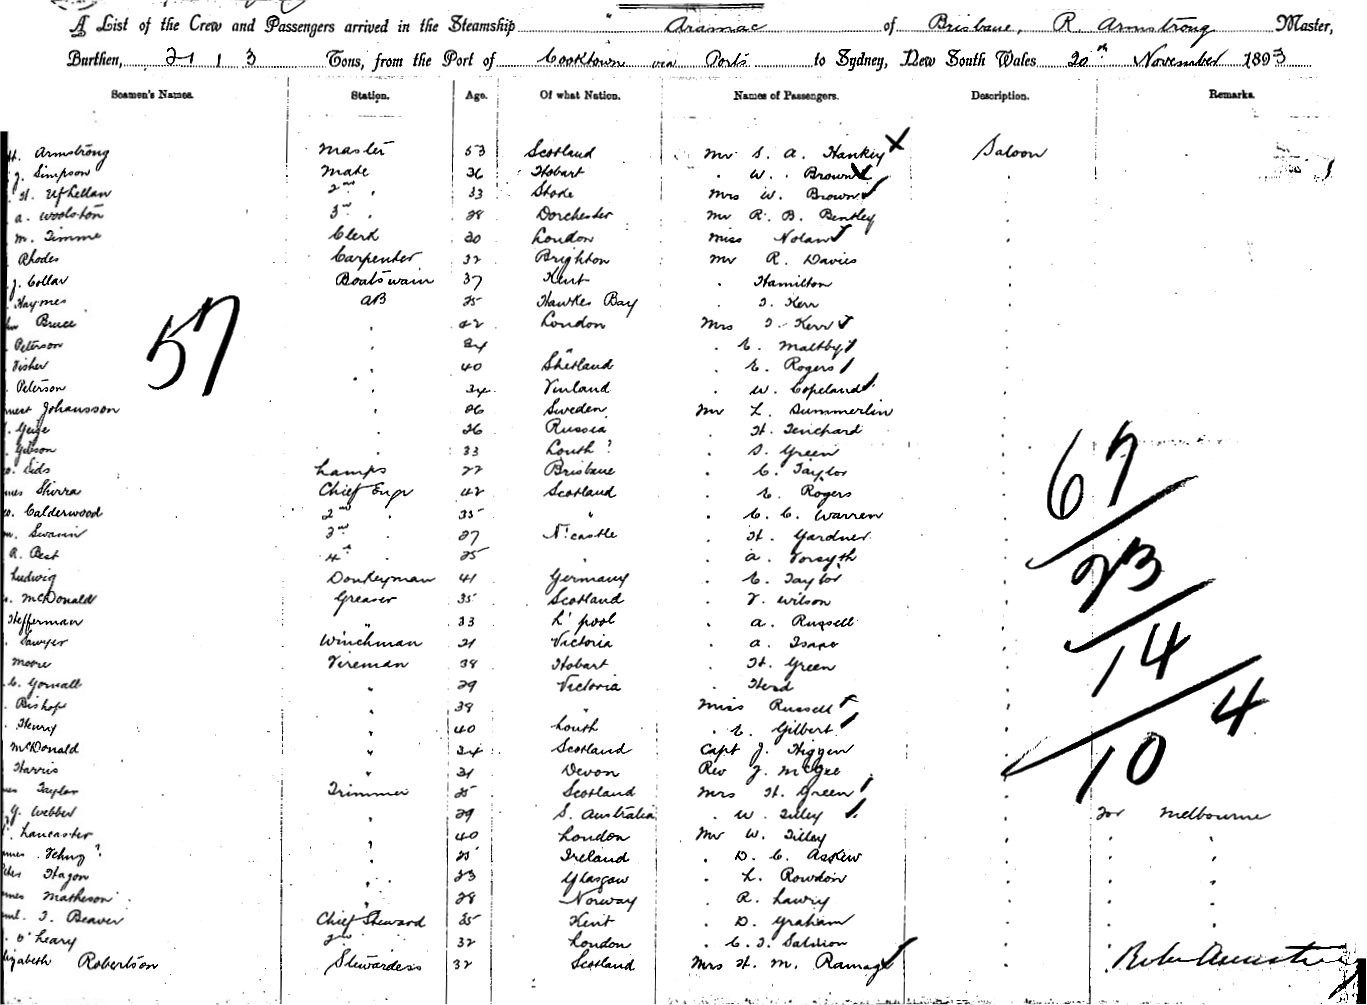 A List of the Crew and Passengers arrived in the Steamship " Aramac of Brisbane, R. Armstrong Master,
Burthen, 2113 Tons, from the Port of Cooktown via Ports to Sydney, New South Wales 20th November 1893
Seamen's Names. Station. Age. Of what Nation. Names of Passengers. Description. Remarks.
Armstrong Master 53 Scotland Mr S. A. Hankey X Saloon
J. Simpson Mate 36 Hobart . W. Brown
H. 2nd " 33 Stoke Mrs W. Brown
A. Woolston 3rd " 28 Dorchester Mr R. B. Bentley
M. Timme Clerk 30 London Miss Nolan
Rhodes Carpenter 32 Brighton Mr R. Davies
J. Collar Boatswain 37 Kent . Hamilton
Haymes AB 25 Hawkes Bay . T. Kerr
Bruce . 42 London Mrs T. Kerr
Peterson . 24 " . E. Maltby
Fisher . 40 Shetland . E. Rogers
Peterson . 34 Finland . W. Copeland
57
Johansson . 26 Sweden Mr L. Summerlin
. 26 Russia . H. Tenchard
Gibson . 33 Louth ? . S. Green
Sids Lamps 22 Brisbane . C. Taylor
Shirra Chief Engr 42 Scotland . E. Rogers
Calderwood 2nd . 35 " . C. C. Warren
67
Swann 3rd . 27 N'castle . H. Gardner
R. Best 4th . 25 . . A. Forsyth
Ludwig Donkeyman 41 Germany . C. Taylor
23
McDonald Greaser 35 Scotland . F. Wilson
Hefferman " 33 L'pool . A. Russell
Sawyer Winchman 21 Victoria . A. Isaac
14
Moore Fireman 38 Hobart . H. Green
C. Gornall " 29 Victoria . Head
Bishop " 38 " Miss Russell
4
Henry " 40 Louth . E. Gilbert
McDonald " 34 Scotland Capt J. Higgen
10
Harris " 31 Devon Rev J. McGee
Taylor Trimmer 25 Scotland Mrs H. Green
G. Webber " 29 S. Australia . W. Tilley For Melbourne
Lancaster " 40 London Mr W. Tilley
" 25 Ireland . D. C. Askew
Hagon " 23 Glasgow . L. Rowdon
Matheson " 28 Norway . R. Lawry
T. Beaver Chief Steward 35 Kent . D. Graham
O'Leary 2nd 32 London . C. T. Salmon
Elizabeth Robertson Stewardess 32 Scotland Mrs H. M. Ramage